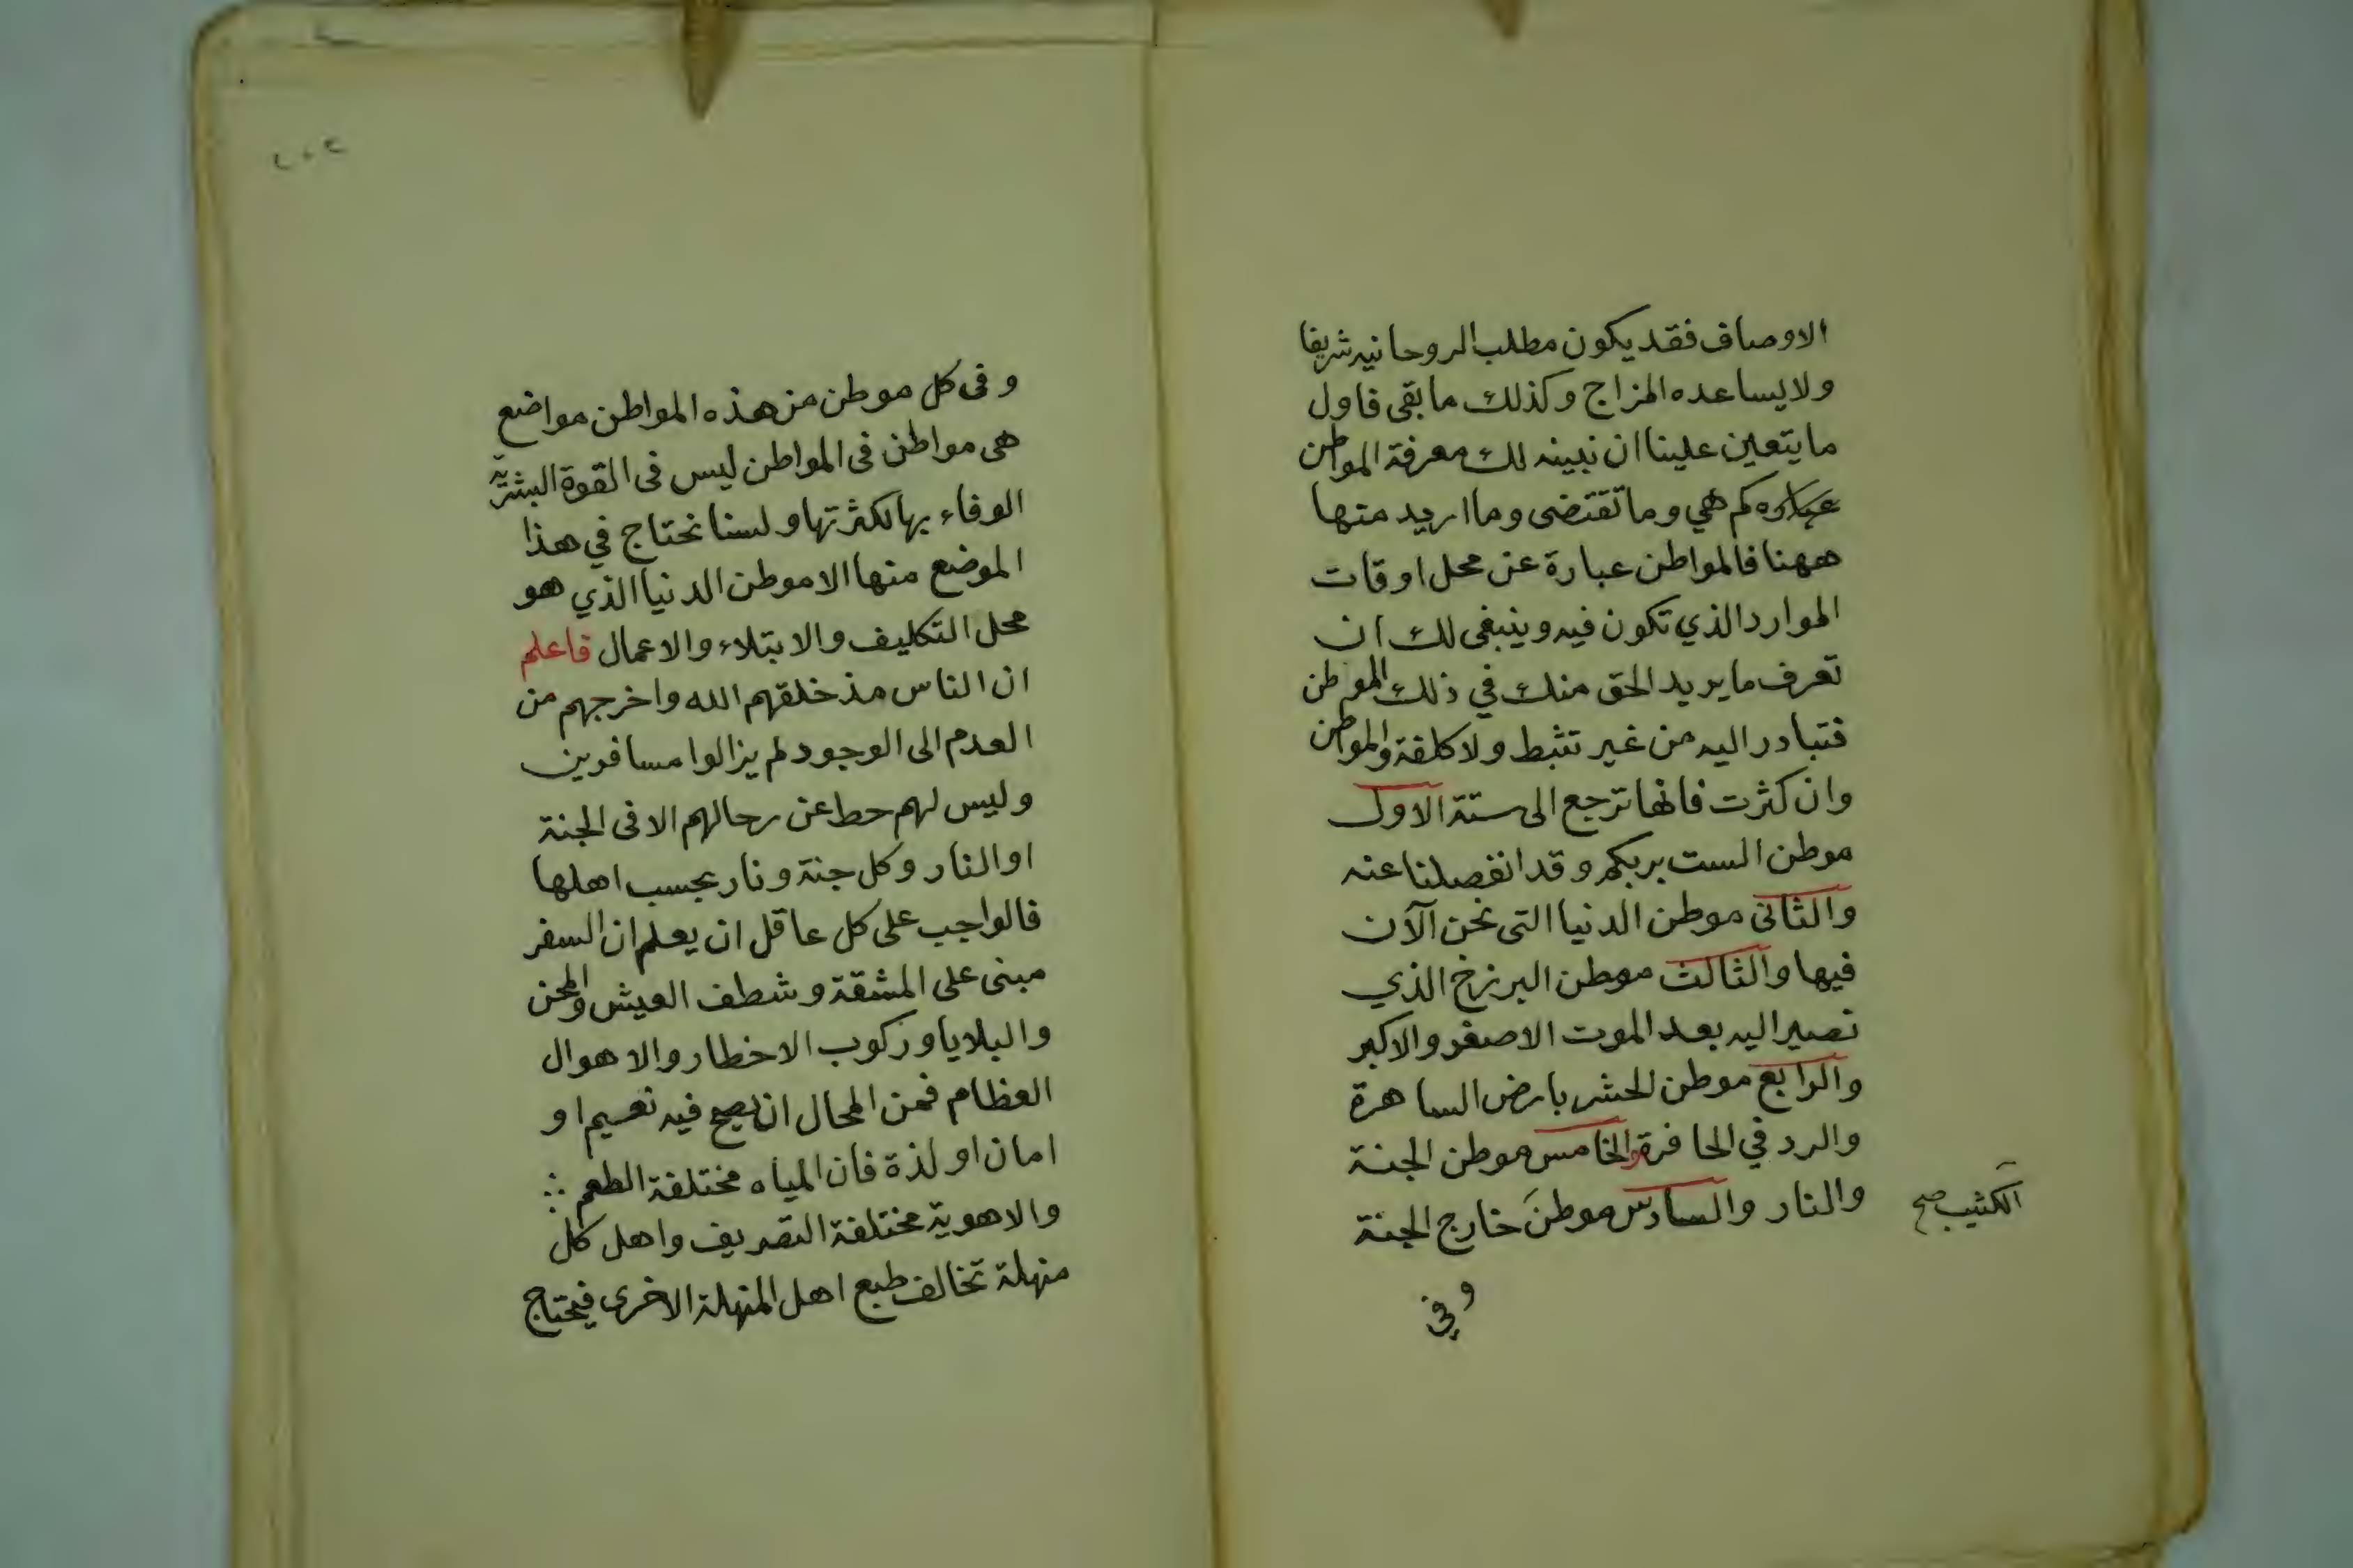 الاوصاف فقد يكون مطلب الروحانيه شريفا
ولا يساعده المزاج وكذلك ما بقى فاول
ما يتعين علينا ان نبينه لك معرفة المواطن
كم هي وما تقتضى وما اريد منها
ههنا فالمواطن عبارة عن محل اوقات
الموارد الذي تكون فيه وينبغى لك ان
تعرف ما يريد الحق منك في ذلك الموطن
فتبادر اليه من غير تثبط ولا كلفة والمواطن
وان كثرت فانها ترجع الى ستة الاول
موطن الست بربكم وقد انفصلنا عنه
والثانى موطن الدنيا التى نحن الآن
فيها والثالث موطن البرزخ الذي
نصير اليه بعد الموت الاصغر والاكبر
والرابع موطن الحشر بارض الساهرة
والرد في الحافرة والخامس موطن الجنة
والنار والسادس موطن خارج الجنة
الكثيب صح
وفي
٢٠٢
وفى كل موطن من هذه المواطن مواضع
هى مواطن فى المواطن ليس فى القوة البشريّة
الوفاء بها لكثرتها ولسنا نحتاج في هذا
الموضع منها الا موطن الدنيا الذي هو
محل التكليف والابتلاء والاعمال فاعلم
ان الناس مذ خلقهم الله واخرجهم من
العدم الى الوجود لم يزالوا مسافرين
وليس لهم حط عن رحالهم الا فى الجنة
او النار وكل جنة ونار بحسب اهلها
فالواجب على كل عاقل ان يعلم ان السفر
مبنى على المشقة وشطف العيش والمحن
والبلايا وركوب الاخطار والاهوال
العظام فمن المحال ان يصح فيه نعيم او
امان او لذة فان المياه مختلفة الطعم
والاهوية مختلفة التصريف واهل كل
منهلة تخالف طبع اهل المنهلة الاخرى فيحتاج